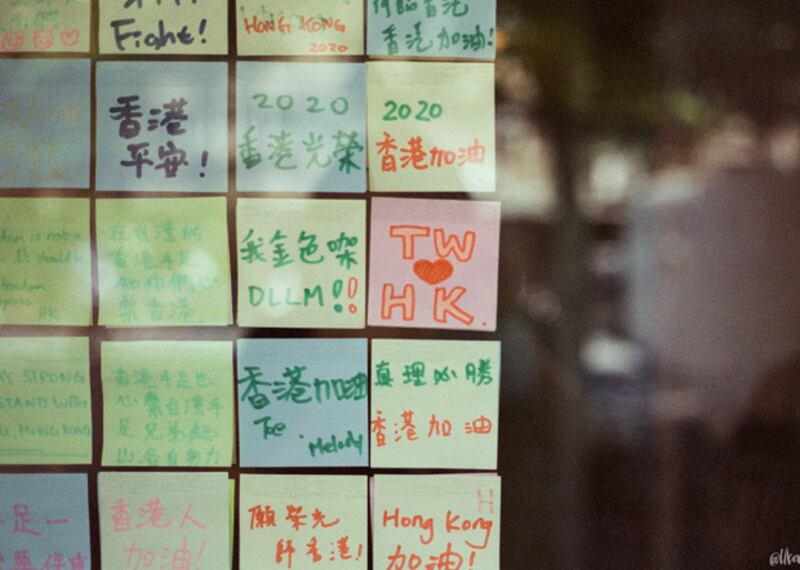 Fight!
HONG KONG
2020
香港加油!
香港
平安!
2020
香港光榮
2020
香港加油
dom is not a
. It should be
freedom
HK
在台灣的
香港手足
和你們心
繫香港
我金色㗎
DLLM!!
TW
HK.
Y STRONG
STAND WITH
U, HONG KONG
香港手足也
心繫台灣手
足兄弟
香港加油
Tae
Melody
真理必勝
香港加油
手足一
香港人
加油!
願榮光
師香港!
H
Hong Kong
加油!